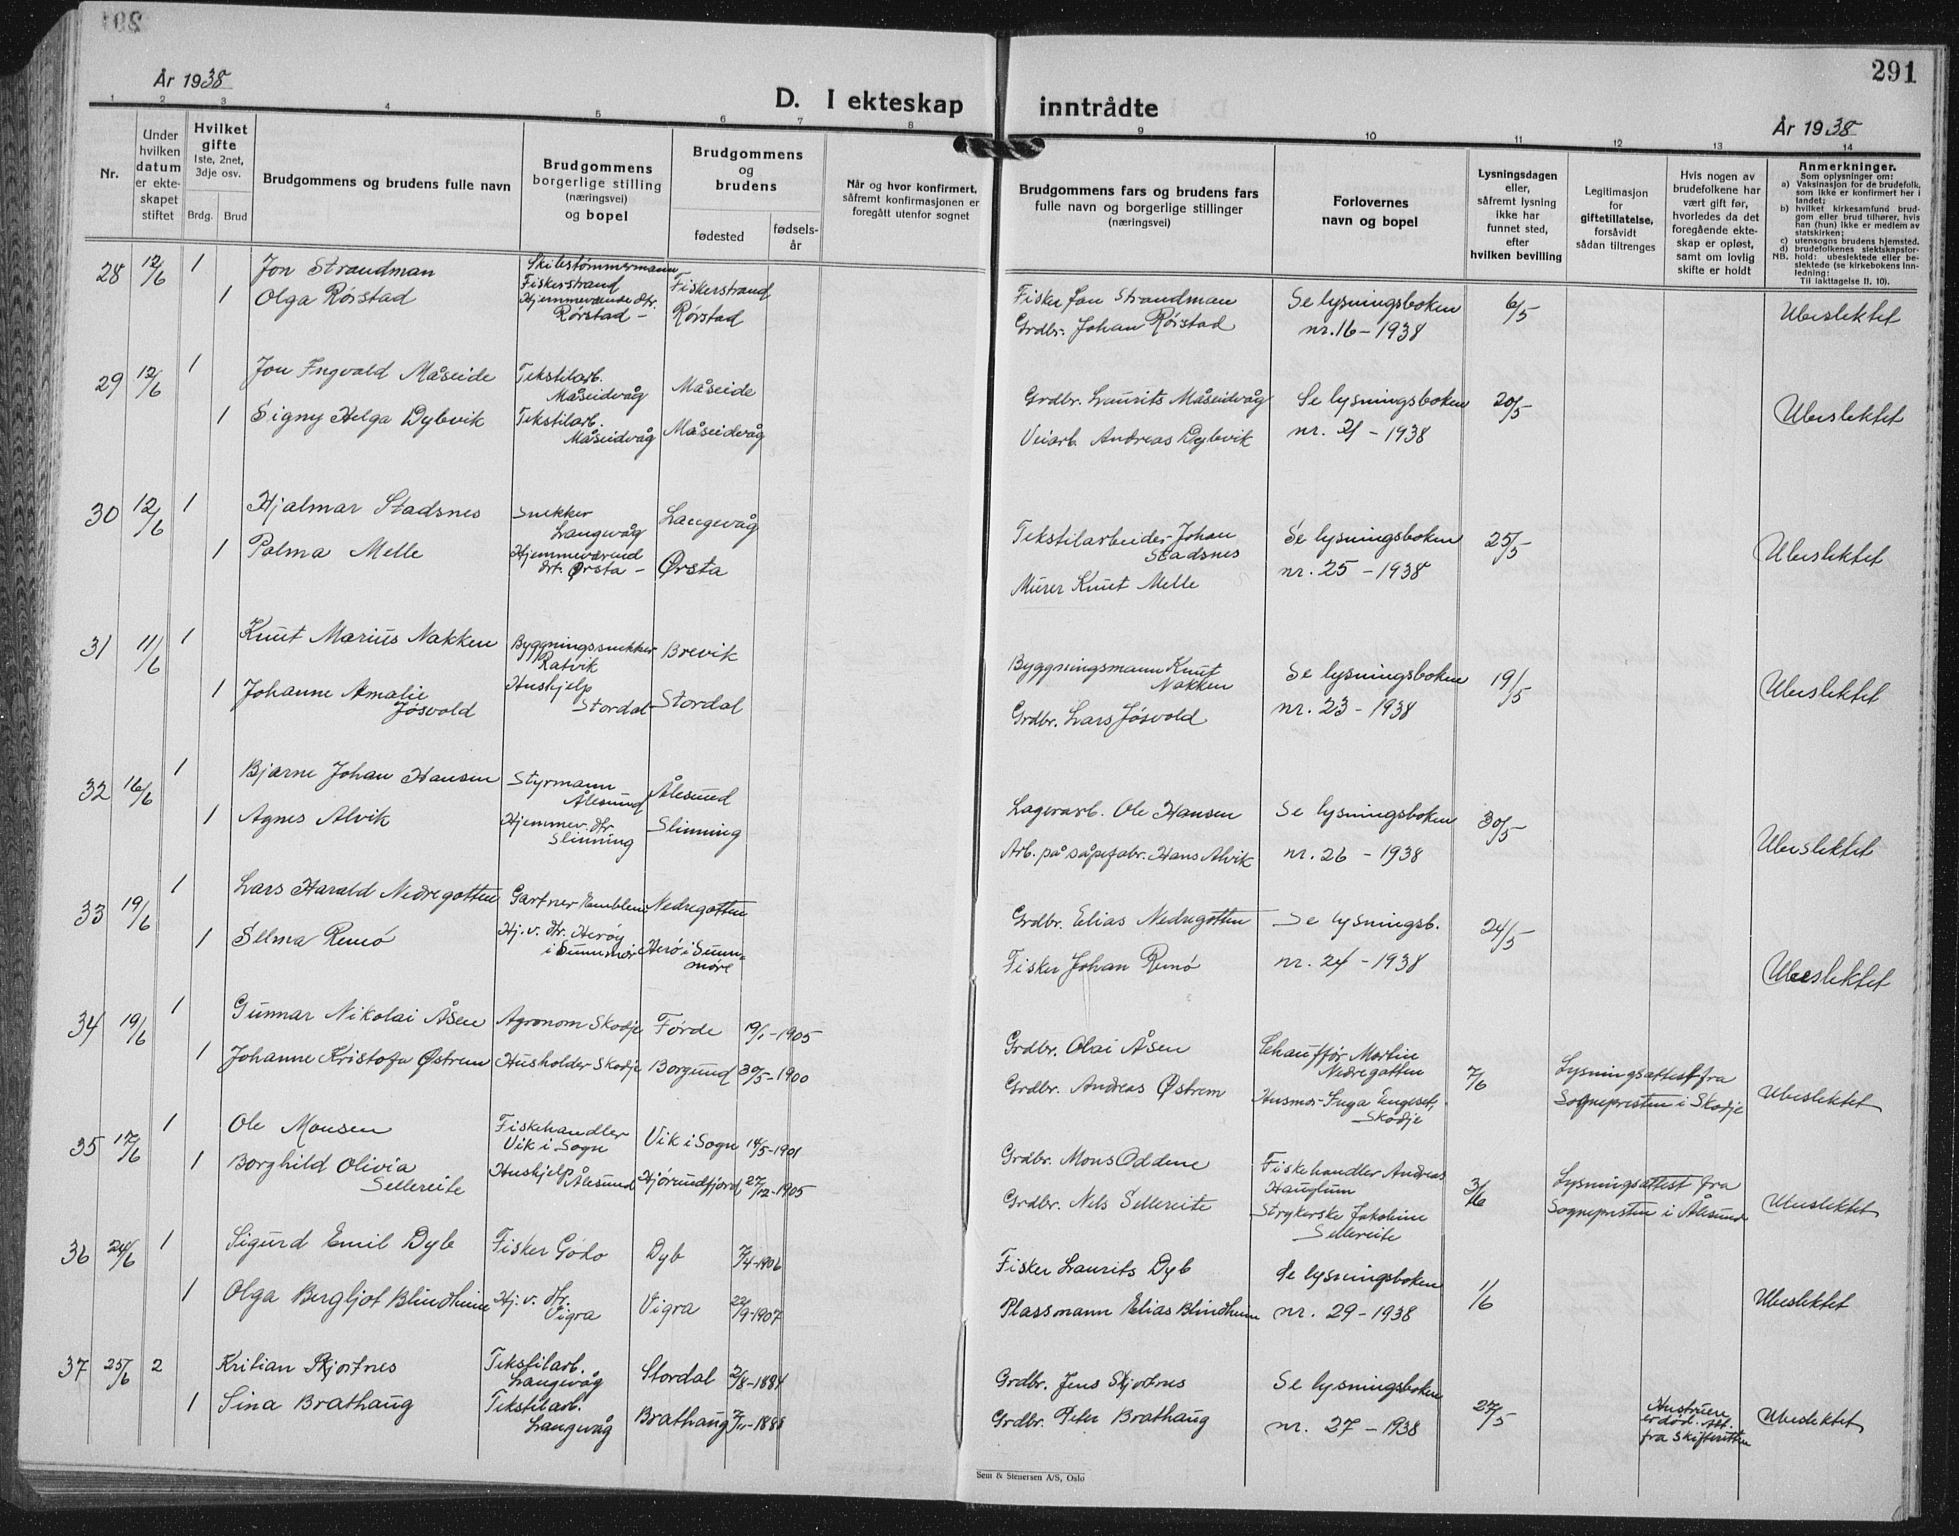 291
År 1938
D. I ekteskap inntrådte
År 1938
1 2 3 4 5 6 7 8 9 10 11 12 13 14
Nr.
Under hvilken datum er ekteskapet stiftet
Hvilket gifte
1ste, 2net, 3dje osv.
Brdg. Brud
Brudgommens og brudens fulle navn
Brudgommens borgerlige stilling (næringsvei) og bopel
Brudgommens og brudens
fødested
fødsels-år
Når og hvor konfirmert, såfremt konfirmasjonen er foregått utenfor sognet
Brudgommens fars og brudens fars fulle navn og borgerlige stillinger (næringsvei)
Forlovernes navn og bopel
Lysningsdagen eller, såfremt lysning ikke har funnet sted, efter hvilken bevilling
Legitimasjon for giftetillatelse, forsåvidt sådan tiltrenges
Hvis nogen av brudefolkene har vært gift før, hvorledes da det foregående ekteskap er opløst, samt om lovlig skifte er holdt
Anmerkninger.
Som oplysninger om:
a) Vaksinasjon for de brudefolk, som ikke er konfirmert her i landet;
b) hvilket kirkesamfund brudgom eller brud tilhører, hvis han (hun) ikke er medlem av statskirken;
c) utensogns brudens hjemsted.
d) brudefolkenes slektskapsforhold: ubeslektede eller beslektede (se kirkebokens innledning:
NB.
Til iakttagelse II. 10).
28 12/6 1 Jon Strandman Skibstømmermann Fiskerstrand Fiskerstrand Fisker Jon Strandman Se lysningsboken 6/5 Ubeslektet
1 Olga Rørstad Hjemmeværende dtr. Rørstad - Rørstad Grdbr. Johan Rørstad nr. 16 - 1938
29 12/6 1 Jon Ingvald Måseide Tekstilarb. Måseidvåg Måseide Grdbr. Laurits Måseidvåg Se lysningsboken 20/5 Ubeslektet
1 Signy Helga Dybvik Tekstilarb. Måseidvåg Måseidvåg Veiarb. Andreas Dybvik nr. 21 - 1938
30 12/6 1 Hjalmar Stadsnes Snekker Langevåg Langevåg Tekstilarbeider Johan Stadsnes Se lysningsboken 25/5 Ubeslektet
1 Palma Melle Hjemmeværend dtr. Ørsta - Ørsta Murer Knut Melle nr. 25 - 1938
31 11/6 1 Knut Marius Nakken Byggningssnekker Ratvik Brevik Byggningsmann Knut Nakken Se lysningsboken 19/5 Ubeslektet
1 Johanne Amalie Jøsvold Hushjelp Stordal Stordal Grdbr. Lars Jøsvold nr. 23 - 1938
32 16/6 1 Bjarne Johan Hansen Styrmann Ålesund Ålesund Lagerarb. Ole Hansen Se lysningsboken 30/5 Ubeslektet
1 Agnes Alvik Hjemmev. dtr. Slinning Slinning Arb. på såpefabr. Hans Alvik nr. 26 - 1938
33 19/6 1 Lars Harald Nedregotten Gartner Emblem Nedregotten Grdbr. Elias Nedregotten Se lysningsb. 24/5 Ubeslektet
1 Selma Remø Hj. v. dtr. Herøy i Sunnmøre Herø i Sunnmøre Fisker Johan Remø nr. 24 - 1938
34 19/6 1 Gunnar Nikolai Åsen Agronom Skodje Førde 19/1-1905 Grdbr. Olai Åsen Chauffør Martin Nedregotten 7/6 Lysningsattest fra Sognepresten i Skodje Ubeslektet
1 Johanne Kristofa Østrem Husholder Skodje Borgund 30/5-1900 Grdbr. Andreas Østrem Husmor Inga Engeset, Skodje
35 17/6 1 Ole Monsen Fiskehandler Vik i Sogn Vik i Sogn 14/5-1901 Grdbr. Mons Oddene Fiskehandler Andreas Hauglum 3/6 Lysningsattest fra Sognepresten i Ålesund Ubeslektet
1 Borghild Olivia Sellereite Hushjelp Ålesund Hjørundfjord 27/12-1905 Grdbr. Nels Sellereite Strykerske Jakobine Sellereite
36 24/6 1 Sigurd Emil Dyb Fisker Godø Dyb 7/4-1906 Fisker Laurits Dyb Se lysningsboken 1/6 Ubeslektet
1 Olga Bergljot Blindheim Hj. v. dtr. Vigra Vigra 22/9-1907 Plassmann Elias Blindheim nr. 29 - 1938
37 25/6 2 Kritian Skjortnes Tekstilarb. Langevåg Stordal 2/8-1884 Grdbr. Jens Skjortnes Se lysningsboken 27/5 Hustruen er død. Att. fra Skifteretten Ubeslektet
1 Sina Brathaug Tekstilarb. Langevåg Brathaug 7/11-1888 Grdbr. Peter Brathaug nr. 27 - 1938
Sem & Stenersen A/S, Oslo